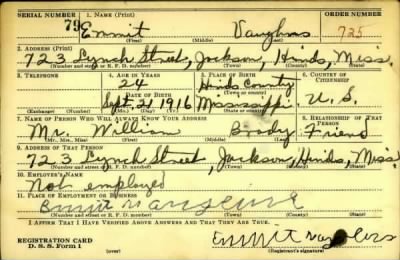 SERIAL NUMBER 1. NAME (Print) ORDER NUMBER
79 Emmit Vaughns 725
(First) (Middle) (Last)
2. ADDRESS (Print)
723 Lynch Street, Jackson, Hinds, Miss.
(Number and street or R. F. D. number) (Town) (County) (State)
3. TELEPHONE 4. AGE IN YEARS 5. PLACE OF BIRTH 6. COUNTRY OF CITIZENSHIP
24 Hinds County
DATE OF BIRTH (Town or county)
Sept. 21 1916 Mississippi U. S.
(Exchange) (Number) (Mo.) (Day) (Yr.) (State or country)
7. NAME OF PERSON WHO WILL ALWAYS KNOW YOUR ADDRESS 8. RELATIONSHIP OF THAT PERSON
Mr. William Brady Friend
(Mr., Mrs., Miss) (First) (Middle) (Last)
9. ADDRESS OF THAT PERSON
723 Lynch Street, Jackson, Hinds, Miss.
(Number and street or R. F. D. number) (Town) (County) (State)
10. EMPLOYER'S NAME
Not employed
11. PLACE OF EMPLOYMENT OR BUSINESS
Emmit
(Number and street or R. F. D. number) (Town) (County) (State)
I AFFIRM THAT I HAVE VERIFIED ABOVE ANSWERS AND THAT THEY ARE TRUE.
REGISTRATION CARD
D. S. S. Form 1 (over) Emmit
(Registrant's signature)